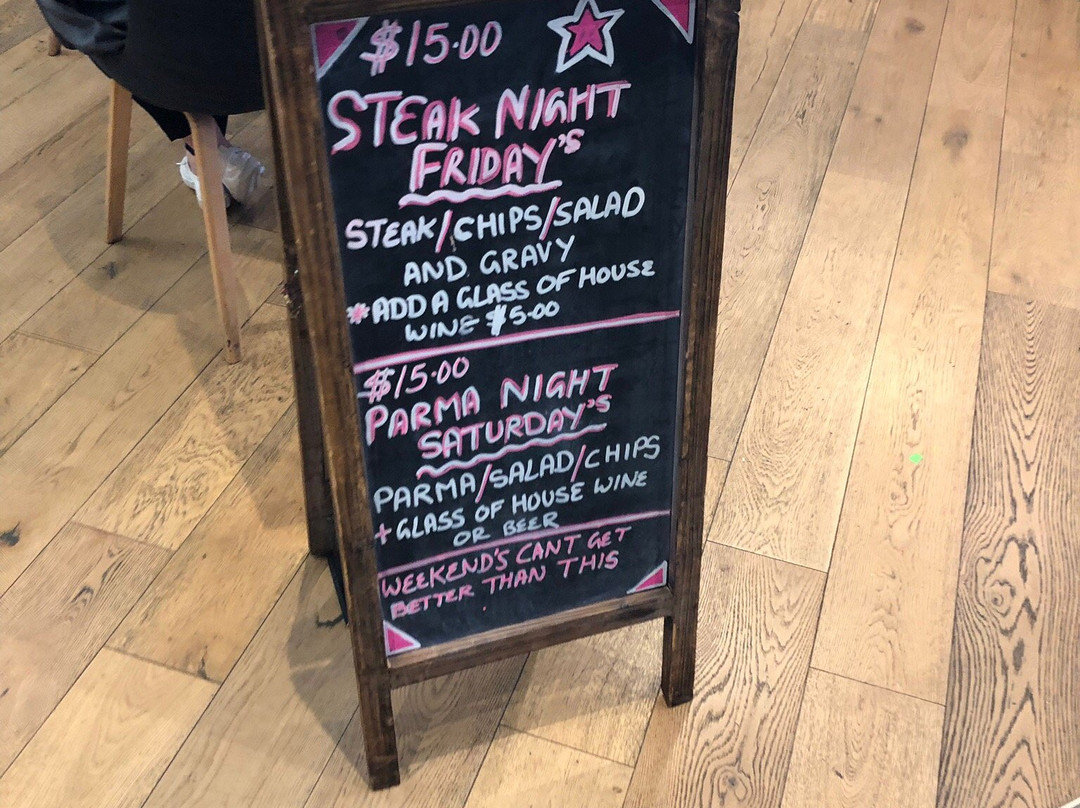 $15.00
STEAK NIGHT
FRIDAY'S
STEAK/CHIPS/SALAD
AND GRAVY
*ADD A GLASS OF HOUSE
WINE $5.00
$15.00
PARMA NIGHT
SATURDAY'S
PARMA/SALAD/CHIPS
+GLASS OF HOUSE WINE
OR BEER
WEEKEND'S CANT GET
BETTER THAN THIS